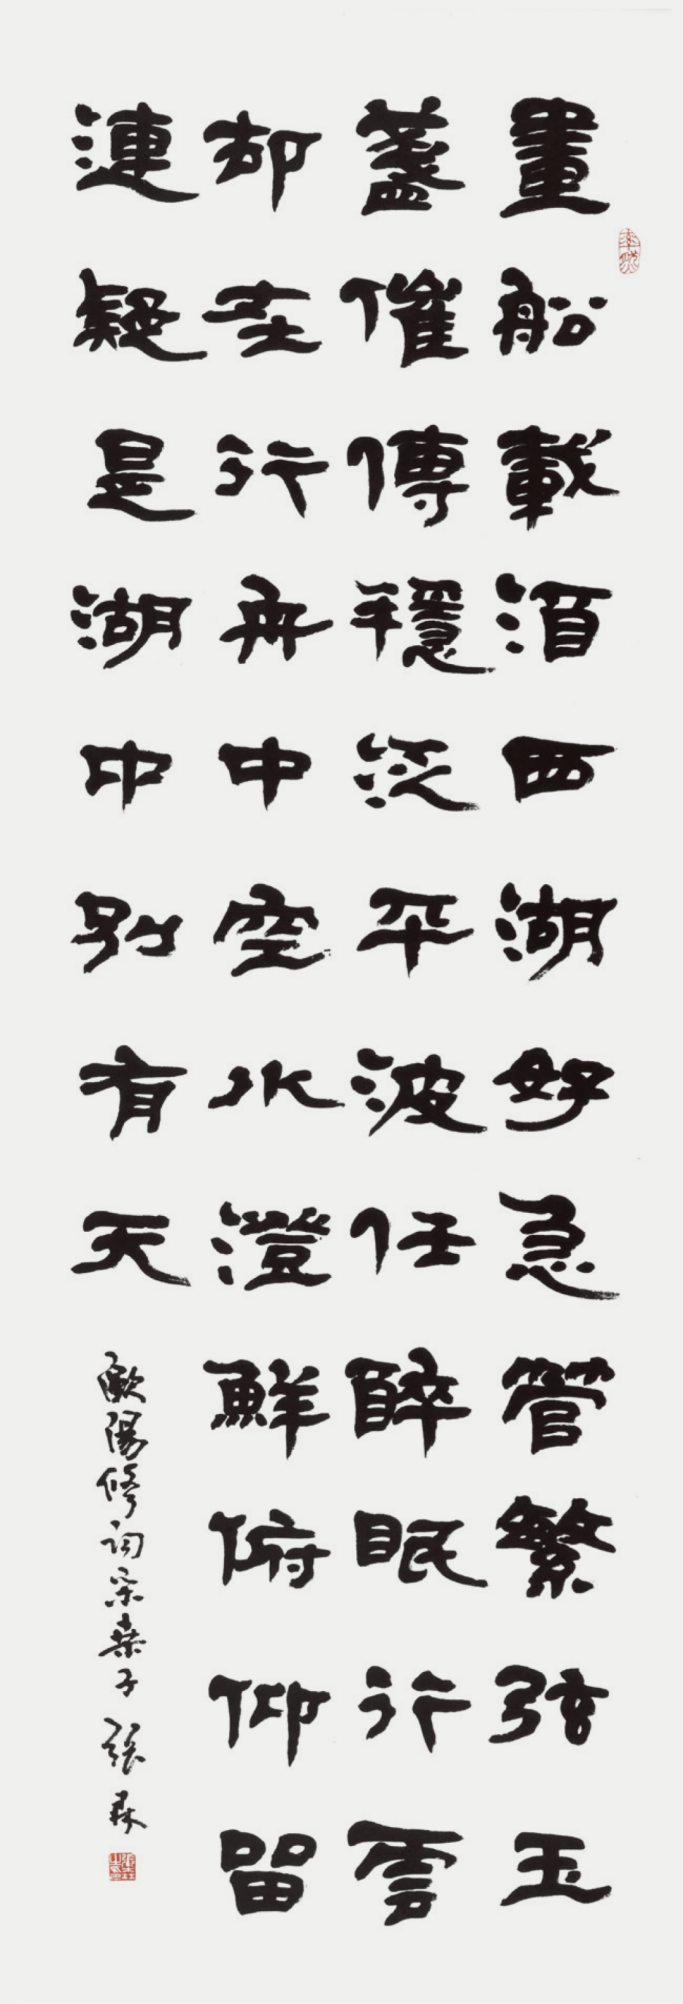 畫船載酒西湖好急管繁弦玉
盞催傳穩泛平波任醉眠行雲
却在行舟中空水澄鮮俯仰留
漣疑是湖中別有天
歐陽修詞采桑子 張森